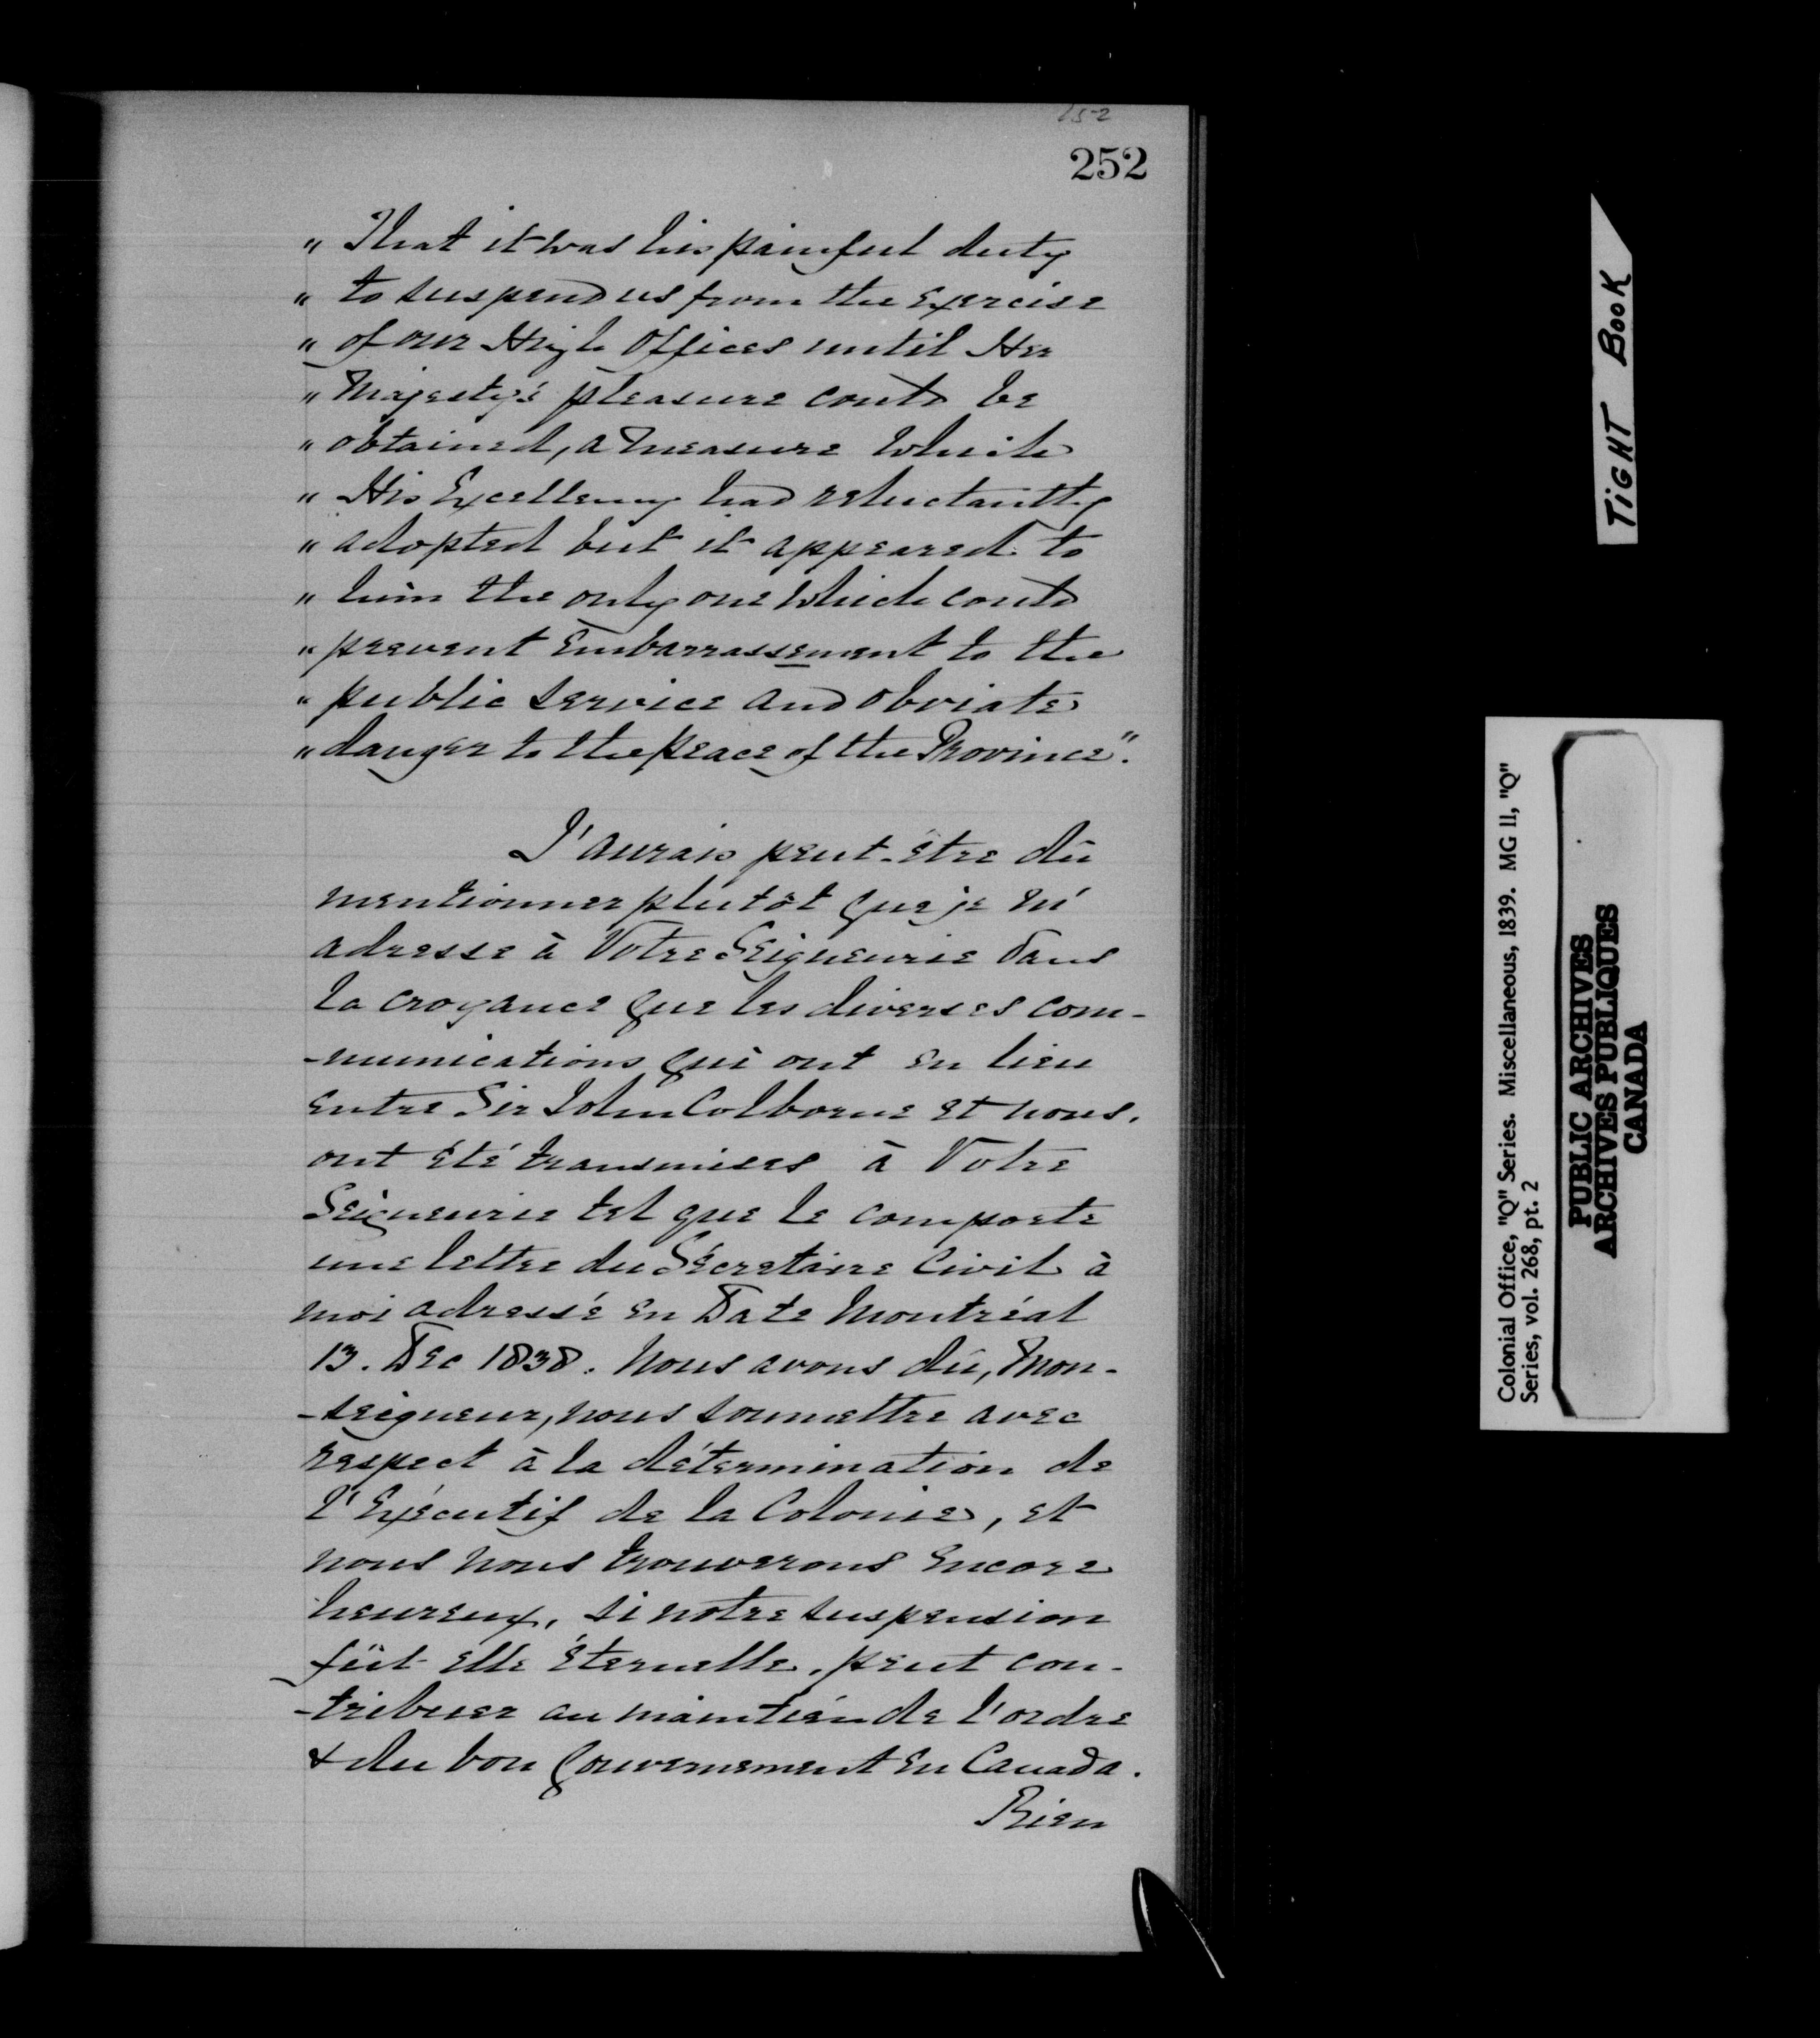 252
252
" That it was his painful duty
" to suspend us from the Exercise
" of our High Offices until Her
" Majesty's pleasure could be
" obtained, a measure which
" His Excellency had reluctantly
" adopted but it appeared to
" him the only one which could
" prevent Embarrassement to the
" public service and obviate
" danger to the peace of the Province".
J'aurais peut-être dû
mentionner plutôt que je m'
adresse à Votre Seigneurie dans
la croyance que les diverses com-
-munications qui ont eu lieu
entre Sir John Colborne et nous.
ont été transmises à Votre
Seigneurie tel que le comporte
une lettre du Sécretaire Civil à
moi adressé en Date Montréal
13. Dec 1838. Nous avons dû, Mon-
-seigneur, nous soumettre avec
respect à la détermination de
l'Exécutif de la Colonie, et
nous nous trouverons encore
heureux, si notre suspension
fût elle éternelle, peut con-
-tribuer au maintien de l'ordre
& du bon Gouvernement en Canada.
Rien
TIGHT BOOK
Colonial Office, "Q" Series. Miscellaneous, 1839. MG 11, "Q"
Series, vol. 268, pt. 2
PUBLIC ARCHIVES
ARCHIVES PUBLIQUES
CANADA